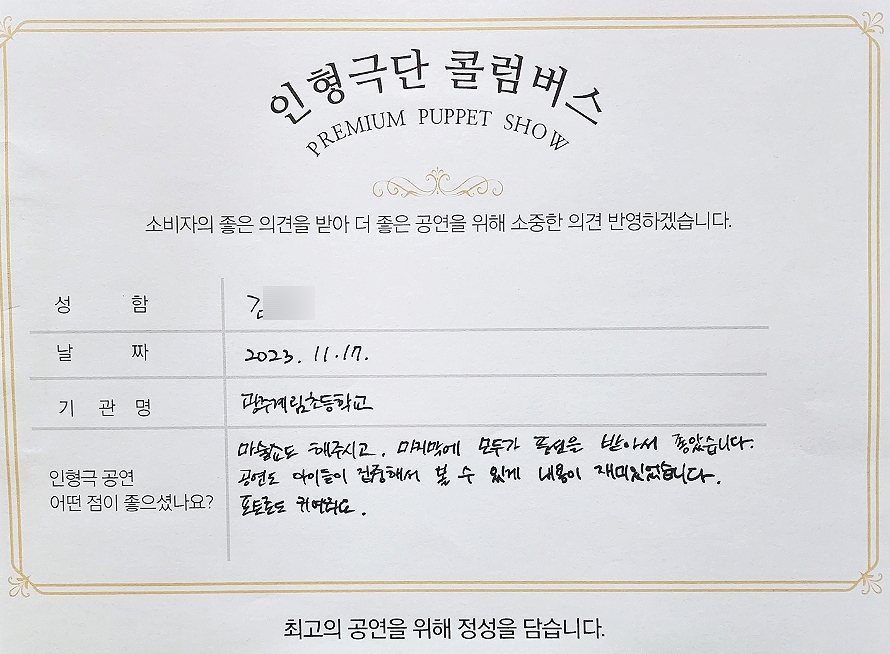 인형극단 콜럼버스
PREMIUM PUPPET SHOW
소비자의 좋은 의견을 받아 더 좋은 공연을 위해 소중한 의견 반영하겠습니다.
성 함 김
날 짜 2023. 11. 17.
기 관 명 광주계림초등학교
인형극 공연
어떤 점이 좋으셨나요?
마술쇼도 해주시고, 마지막에 모두가 풍선을 받아서 좋았습니다.
공연도 아이들이 집중해서 볼 수 있게 내용이 재미있었습니다.
포토존도 귀여워요.
최고의 공연을 위해 정성을 담습니다.